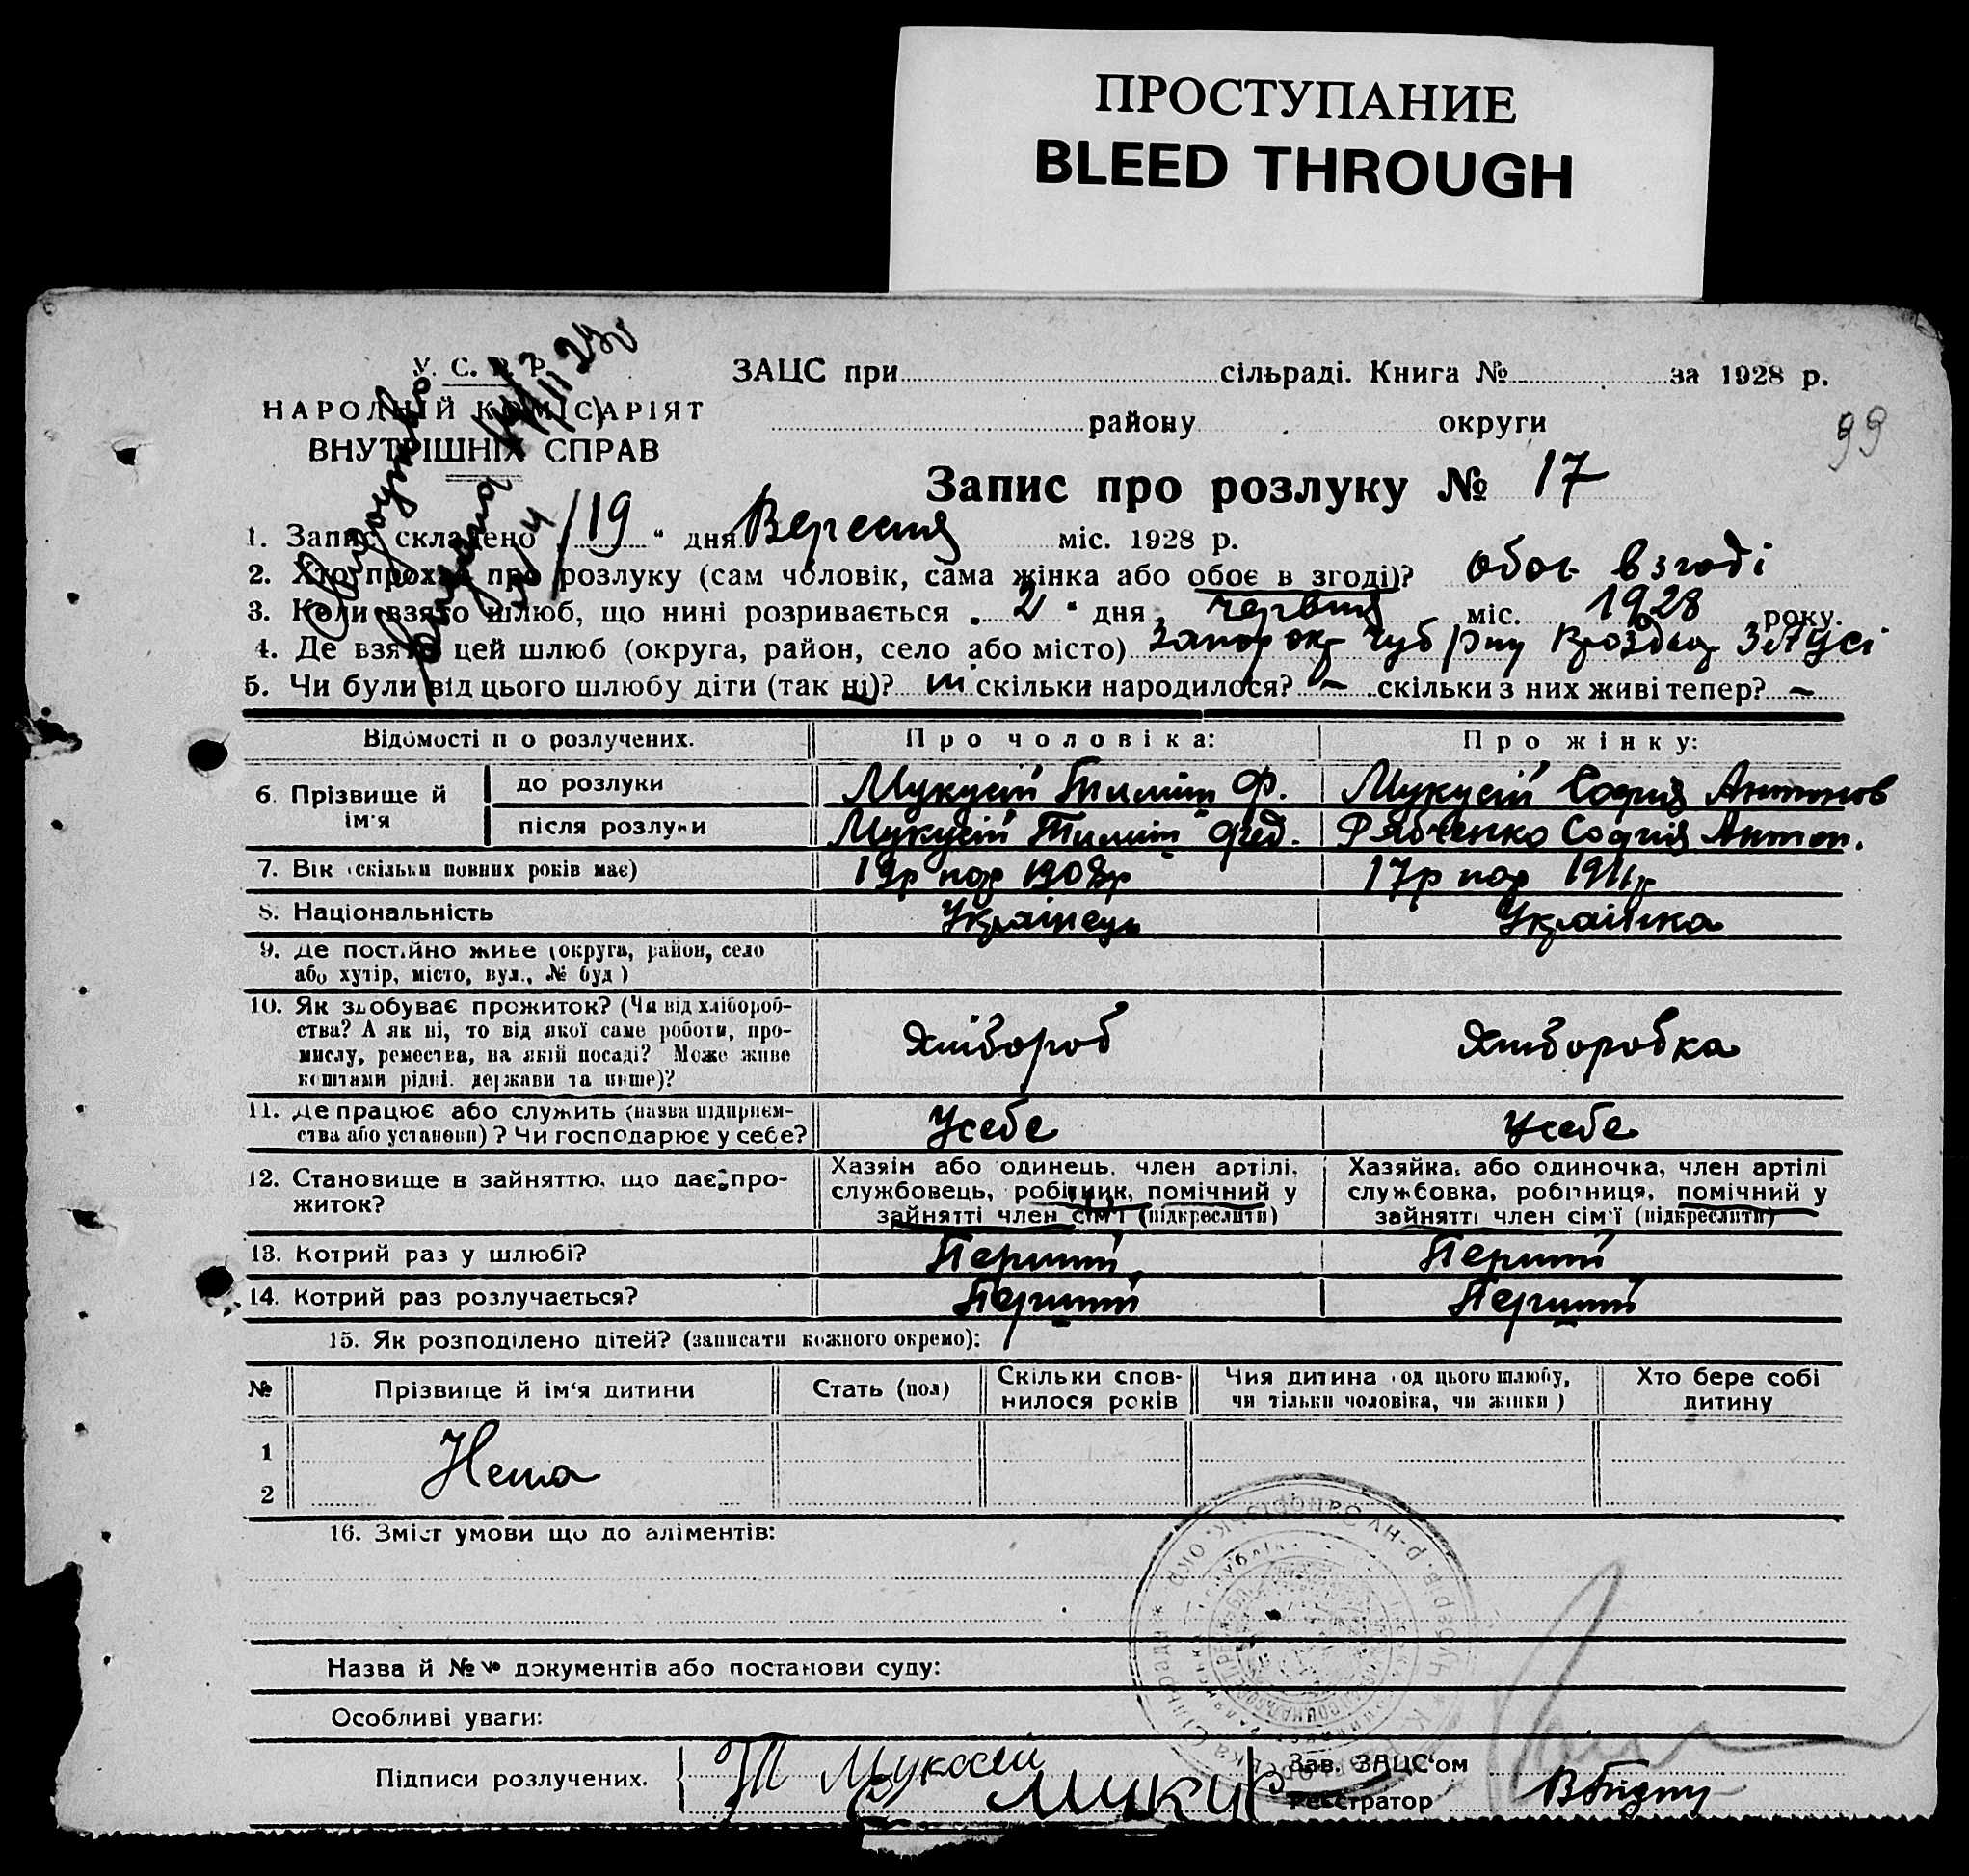 ПРОСТУПАНИЕ
BLEED THROUGH
У. С. Р. Р.
НАРОДНІЙ КОМІСАРІЯТ
ВНУТРІШНІХ СПРАВ
ЗАЦС при сільраді. Книга № за 1928 р.
району округи
99
Запис про розлуку № 17
1. Запис складено 19 " дня Вересня міс. 1928 р.
2. Хто прохає про розлуку (сам чоловік, сама жінка або обоє в згоді)? обоє в згоді
3. Коли взято шлюб, що нині розривається 2 " дня червня міс. 1928 року.
4. Де взято цей шлюб (округа, район, село або місто) Запор окр Чуб рну
5. Чи були від цього шлюбу діти (так ні)? ні скільки народилося? – скільки з них живі тепер? –
Відомості про розлучених. Про чоловіка: Про жінку:
6. Прізвище й ім'я
до розлуки Мукусій Тиміш Ф. Мукусій Софія Антонов
після розлуки Мукусій Тиміш Фед. Рябченко Софія Антон.
7. Вік (скільки повних років має) 19р нар 1908р 17р нар 1911р
8. Національність Українець Українка
9. Де постійно живе (округа, район, село
або хутір, місто, вул., № буд)
10. Як здобуває прожиток? (Чи від хлібороб-
ства? А як ні, то від якої саме роботи, про-
мислу, ремества, на якій посаді? Може живе
коштами рідні, держави та инше)?
Хлібороб Хлібороб­ка
11. Де працює або служить (назва підприєм-
ства або установи)? Чи господарює у себе?
Усебе Усебе
12. Становище в зайняттю, що дає про-
житок?
Хазяїн або одинець, член артілі,
службовець, робітник, помічний у
зайнятті член сім'ї (підкреслити)
Хазяйка, або одиночка, член артілі
службовка, робітниця, помічний у
зайнятті член сім'ї (підкреслити)
13. Котрий раз у шлюбі? Перший Перший
14. Котрий раз розлучається? Перший Перший
15. Як розподілено дітей? (записати кожного окремо):
№ Прізвище й ім'я дитини Стать (пол) Скільки спов-
нилося років Чия дитина (од цього шлюбу,
чи тільки чоловіка, чи жінки) Хто бере собі
дитину
1
Нема
2
16. Зміст умови що до аліментів:
Назва й № документів або постанови суду:
Особливі уваги:
Підписи розлучених. Т Мукосей
Муку
Зав. ЗАЦС'ом
Реєстратор